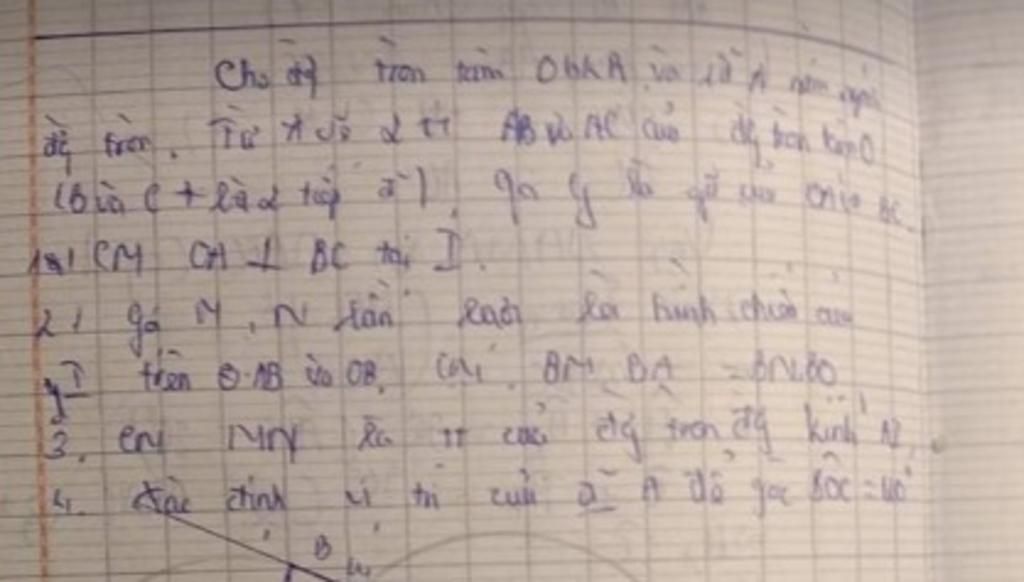 Cho đg tròn tâm O bk R và
đg tròn. Từ A vẽ 2 tt AB và AC của đg tròn tâm O
(B và C + là 2 tiếp đ'). gọi là của OA và BC
CM OA ⊥ BC tại I.
2. gọi M, N lần lượt là hình chiếu của
I trên AB và OB. CM: BM.BA = BN.BO
3. CM MN là tt của đg tròn đg kính
4. xác định vị trí của đ' A để góc BOC =
B